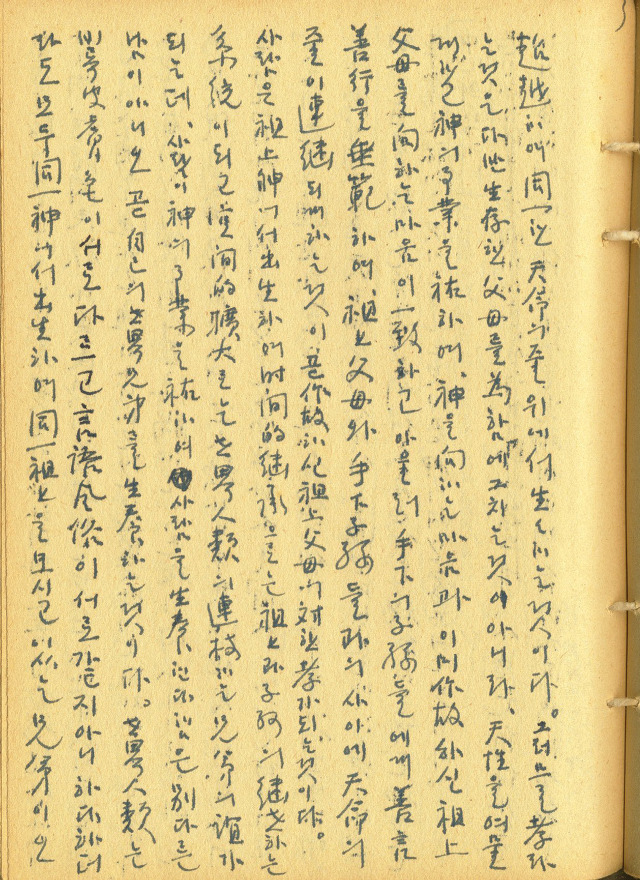 超越하여 同一한 天命의 줄 위에서 生하는 것이다。그러므로 孝라
는 것은 다만 生存한 父母를 爲함에 그치는 것이 아니라、天性을 여물
게 하고 神의 事業을 祐하며、神을 向하는 마음과 이미 作故하신 祖上
父母를 向하는 마음이 一致하고 아울러 手下의 子孫들에게 善言
善行을 垂範하여、祖上父母와 手下子孫들과의 사이에 天命의
줄이 連繼되게 하는 것이 곧 作故하신 祖上父母에 對한 孝가 되는 것이다。
사람은 祖上神에서 出生하여 時间的 継承으로는 祖上과 子孫의 継世하는
系統이 되고 空间的 擴大로는 世界人類의 連枝인 兄弟의 誼가
되는데、사람이 神의 事業을 祐하여 사람을 生養한다 함은 別다른
 아니오 곧 自己의 世界兄弟를 生養하는 것이다。世界人類는
비록 皮膚色이 서로 다르고 言語風俗이 서로 같지 아니하다 하더
라도 모두 同一神에서 出生하여 同一祖上을 모시고 있는 兄弟이오